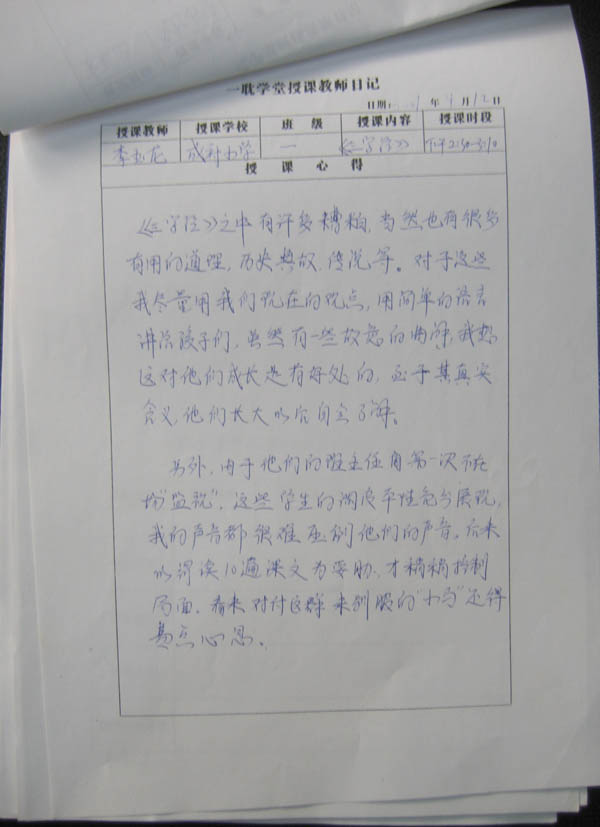 一耽学堂授课教师日记
日期: 年 月12日
授课教师 授课学校 班 级 授课内容 授课时段
李 龙 成府小学 一 《三字经》 下午2:30-3:10
授 课 心 得
《三字经》之中有许多糟粕，当然也有很多
有用的道理，历史典故，传说等。对于这些
我尽量用我们现在的观点，用简单的语言
讲给孩子们，虽然有一些故意的曲解，我想
这对他们成长是有好处的，至于其真实
含义，他们长大以后自会了解。
另外，由于他们的班主任有第一次不在
场“监视”，这些学生的调皮本性充分展现，
我的声音都很难压制他们的声音。后来
以罚读10遍课文为要胁，才稍稍控制
局面，看来对付这群未驯服的“小马”还得
费点心思。